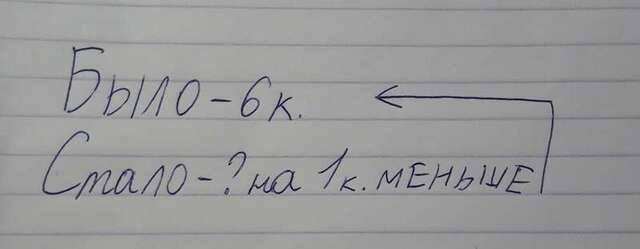 Было – 6 к.
Стало – ? на 1 к. меньше